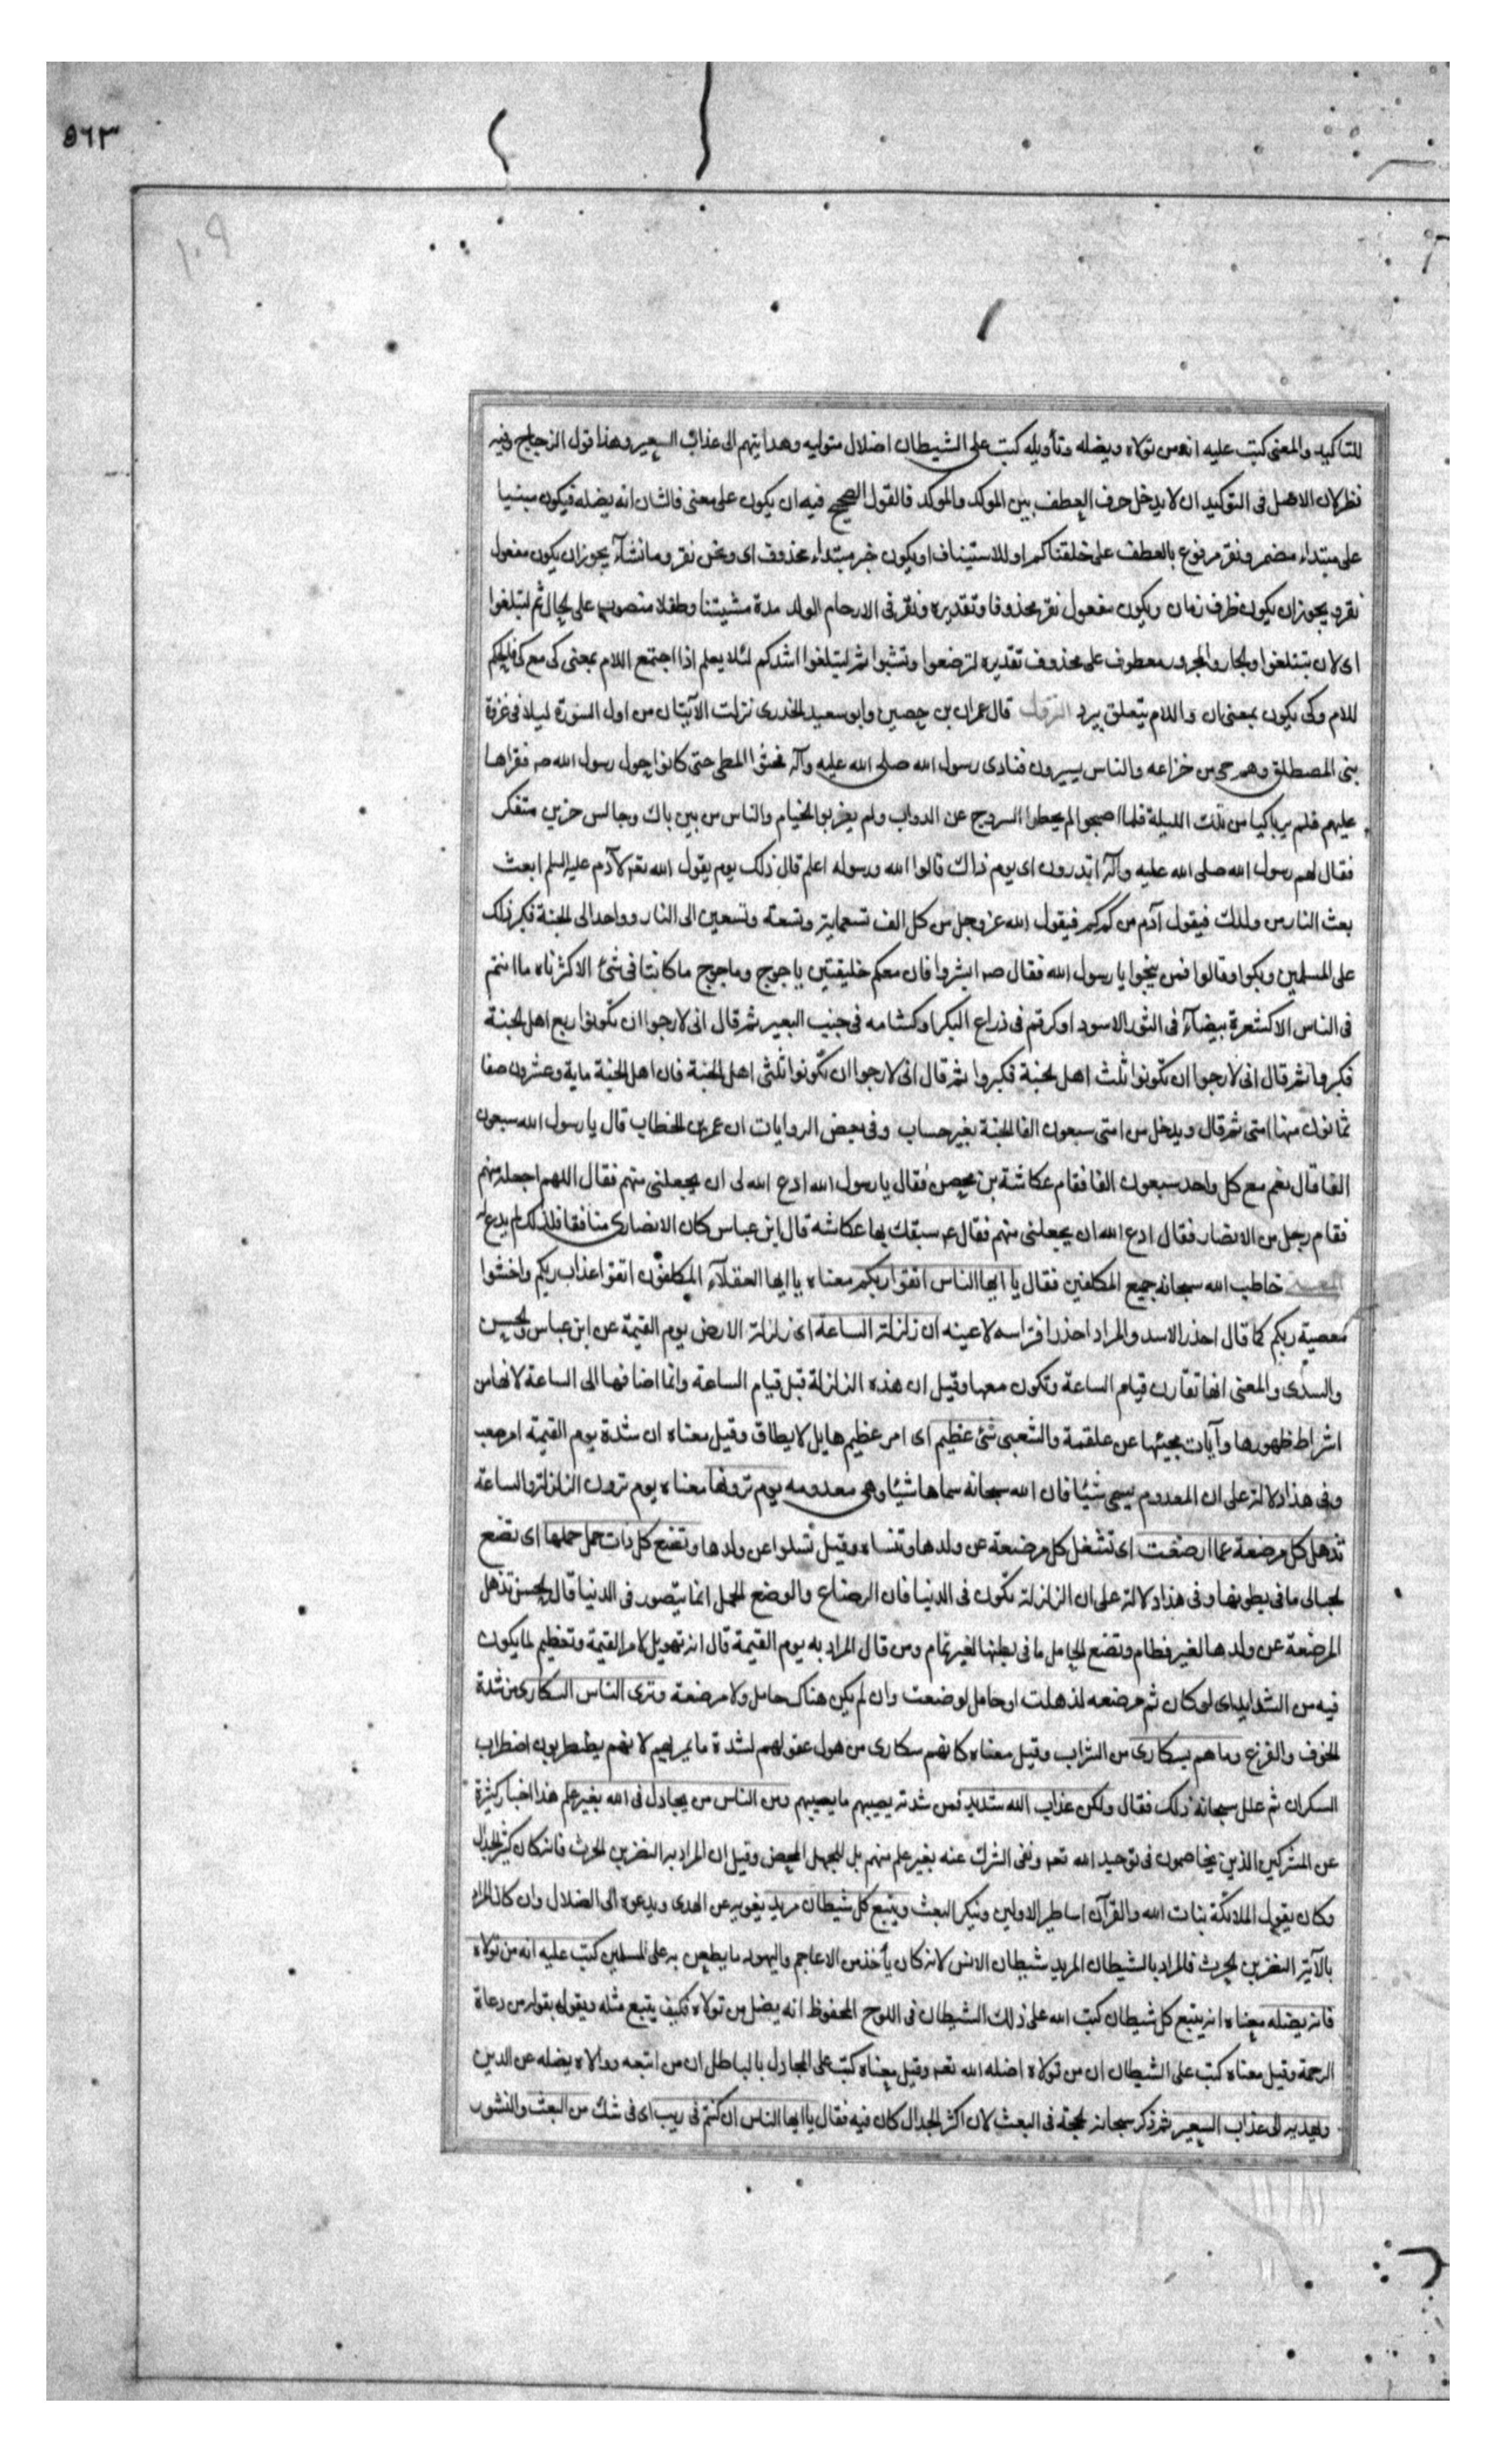 ٥٦٣
١٠٩
للتاكيد والمعنى كتب عليه انه من تولاه ويضله وتأويله كتب على الشيطان اضلال متوليه وهدايتهم الى عذاب السعير وهذا قول الزجاج وفيه
نظر لان الاصل فى التوكيد ان لا يدخل حرف العطف بين الموكد والموكد فالقول الصحيح فيه ان يكون على معنى فالشان انه يضله فيكون مبنيا
على مبتداء مضمر ونقر مرفوع بالعطف على خلقناكم او للاستيناف او يكون خبر مبتداء محذوف اى ونحن نقر وما نشآء يجوز ان يكون مفعول
نقر ويجوز ان يكون ظرف زمان ويكون مفعول نقر محذوفا وتقديره ونقر فى الارحام الولد مدة مشيتنا وطفلا منصوب على الحال ثم لتبلغوا
اى لان تبتلغوا والجار والمجرور معطوف على محذوف تقديره لترضعوا وتشبوا ثم لتبلغوا اشدكم لئلا يعلم اذا اجتمع اللام بمعنى كى مع كى فالحكم
للام وكى يكون بمعنى ان واللام يتعلق بيرد النزول قال عمران بن حصين وابو سعيد الخدرى نزلت الآيتان من اول السورة ليلا فى غزوة
بنى المصطلق وهم حى من خزاعه والناس يسيرون فنادى رسول الله صلى الله عليه وآله فحثوا المطى حتى كانوا حول رسول الله صم فقراها
عليهم فلم ير باكيا من تلك الليلة فلما اصبحوا لم يحطوا السروج عن الدواب ولم يضربوا الخيام والناس من بين باك وجالس حزين متفكر
فقال لهم رسول الله صلى الله عليه وآله اتدرون اى يوم ذاك قالوا الله ورسوله اعلم قال ذلك يوم يقول الله تعم لآدم عليه السلم ابعث
بعث النار من ولدك فيقول آدم من كم كم فيقول الله عز وجل من كل الف تسعماية وتسعة وتسعين الى النار وواحد الى الجنة فكبر ذلك
على المسلمين وبكوا وقالوا فمن ينجوا يا رسول الله فقال صم ابشروا فان معكم خليقتين ياجوج وماجوج ما كانتا فى شئ الا كثرتاه ما انتم
فى الناس الا كشعرة بيضآء فى الثور الاسود او كرقم فى ذراع البكر او كشامه فى جنب البعير ثم قال انى لارجوا ان تكونوا ربع اهل الجنة
فكبروا ثم قال انى لارجوا ان تكونوا ثلث اهل الجنة فكبروا ثم قال انى لارجوا ان تكونوا ثلثى اهل الجنة فان اهل الجنة ماية وعشرون صفا
ثمانون منها امتى ثم قال ويدخل من امتى سبعون الفا الجنة بغير حساب وفى بعض الروايات ان عمر بن الخطاب قال يا رسول الله سبعون
الفا قال نعم مع كل واحد سبعون الفا فقام عكاشة بن محصن فقال يا رسول الله ادع الله لى ان يجعلنى منهم فقال اللهم اجعله منهم
فقام رجل من الانصار فقال ادع الله ان يجعلنى منهم فقال عم سبقك بها عكاشه قال ابن عباس كان الانصارى منافقا فلذلك لم يدع له
المعنى خاطب الله سبحانه جميع المكلفين فقال يا ايها الناس اتقوا ربكم معناه يا ايها العقلآء المكلفون اتقوا عذاب ربكم واخشوا
معصية ربكم كما قال احذر الاسد والمراد احذر افتراسه لا عينه ان زلزلة الساعة اى زلزلة الارض يوم القيمة عن ابن عباس والحسن
والسدى والمعنى انها تقارن قيام الساعة وتكون معها وقيل ان هذه الزلزلة قبل قيام الساعة وانما اضافها الى الساعة لانها من
اشراط ظهورها وآيات مجيئها عن علقمة والشعبى شئ عظيم اى امر عظيم هايل لا يطاق وقيل معناه ان شدة يوم القيمة امر صعب
وفى هذا دلالة على ان المعدوم يسمى شيئا فان الله سبحانه سماها شيئا وهى معدومه يوم ترونها معناه يوم ترون الزلزلة والساعة
تذهل كل مرضعة عما ارضعت اى تشغل كل مرضعة عن ولدها وتنساه وقيل تسلوا عن ولدها وتضع كل ذات حمل حملها اى تضع
الحبالى ما فى بطونها وفى هذا دلالة على ان الزلزلة تكون فى الدنيا فان الرضاع والوضع الحمل انما يتصور فى الدنيا قال الحسن تذهل
المرضعة عن ولدها لغير فطام وتضع الحامل ما فى بطنها لغير تمام ومن قال المراد به يوم القيمة قال انه تهويل لامر القيمة وتعظيم لما يكون
فيه من الشدايد اى لو كان ثم مرضعه لذهلت او حامل لوضعت وان لم يكن هناك حامل ولا مرضعة وترى الناس السكارى من شدة
الخوف والفزع وما هم بسكارى من الشراب وقيل معناه كانهم سكارى من هول عقولهم لشدة ما يمر بهم لانهم يضطربون اضطراب
السكران ثم علل سبحانه ذلك فقال ولكن عذاب الله شديد فمن شدته يصيبهم ما يصيبهم ومن الناس من يجادل فى الله بغير علم هذا اخبار كثيرة
عن المشركين الذين يخاصمون فى توحيد الله تعم ونفى الشرك عنه بغير علم منهم بل للجهل المحض وقيل ان المراد به النضر بن الحرث فانه كان كثير الجدال
وكان يقول الملائكة بنات الله والقرآن اساطير الاولين وينكر البعث ويتبع كل شيطان مريد يغويه عن الهدى ويدعوه الى الضلال وان كان المراد
بالآية النضر بن الحرث فالمراد بالشيطان المريد شيطان الانس لانه كان يأخذ من الاعاجم واليهود ما يطعن به على المسلمين كتب عليه انه من تولاه
فانه يضله معناه انه يتبع كل شيطان كتب الله على ذلك الشيطان فى اللوح المحفوظ انه يضل من تولاه فكيف يتبع مثله ويقول بقوله من دعاة
الرحمة وقيل معناه كتب على الشيطان ان من تولاه اضله الله تعم وقيل معناه كتب على المجادل بالباطل ان من اتبعه ووالاه يضله عن الدين
ويهديه الى عذاب السعير ثم ذكر سبحانه الحجة فى البعث لان اكثر الجدال كان فيه فقال يا ايها الناس ان كنتم فى ريب اى فى شك من البعث والنشور